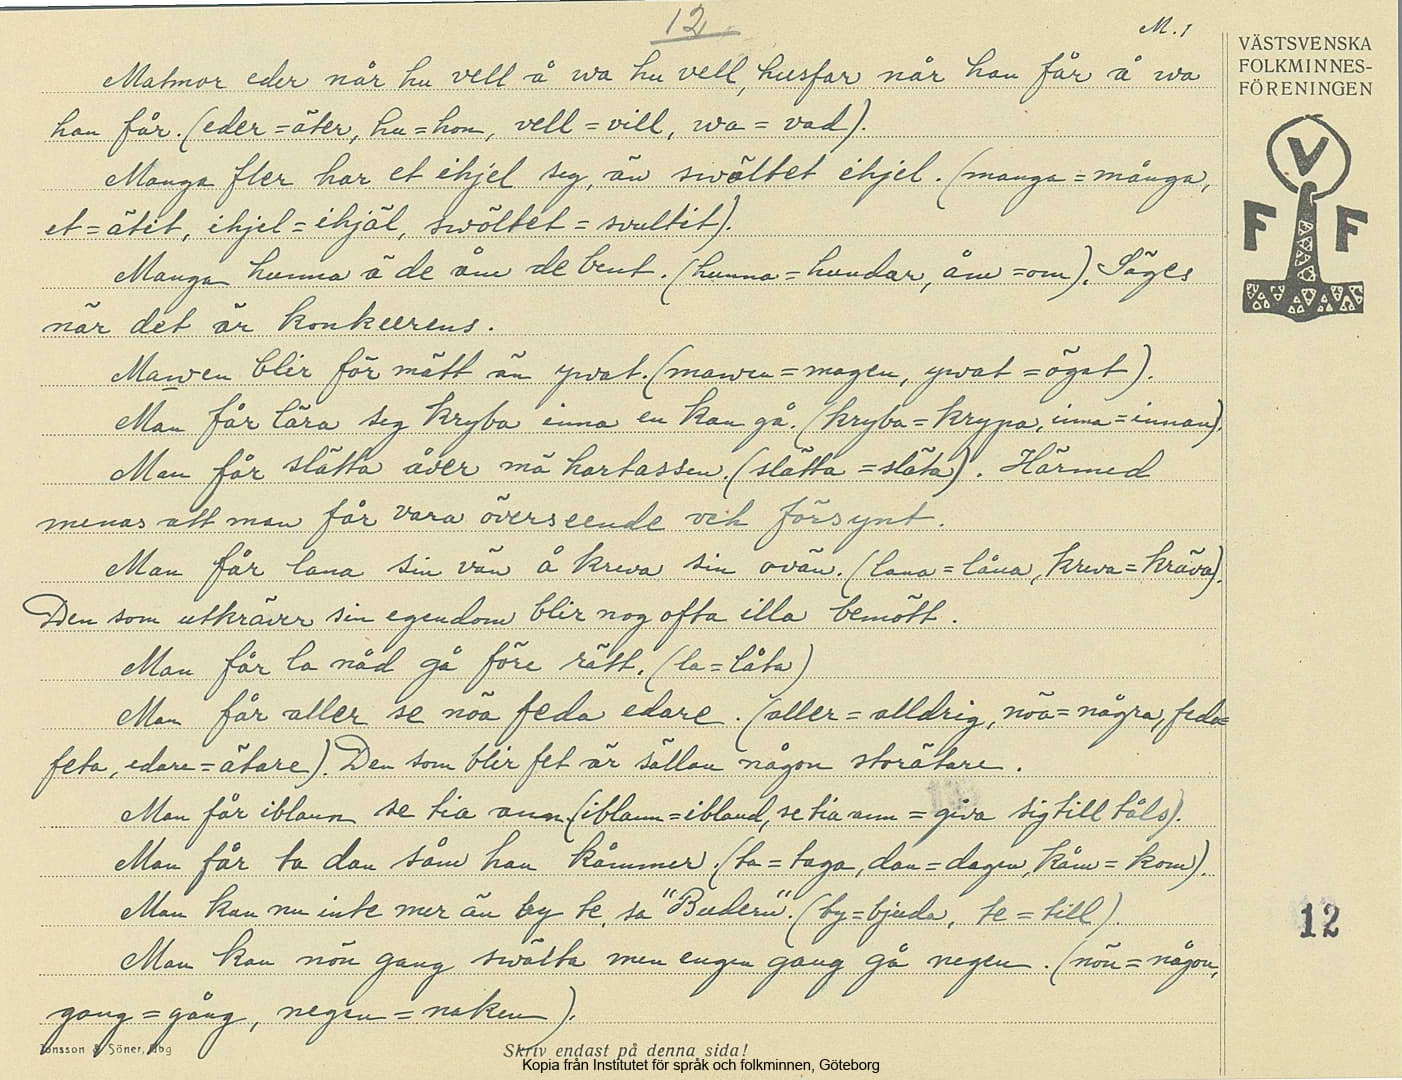 12
M. 1
VÄSTSVENSKA
FOLKMINNES-
FÖRENINGEN
V
F F
Matmor eder når hu vell å wa hu vell, husfar når han får å wa
han får. (eder = äter, hu = hon, vell = vill, wa = vad).
Manga fler har et ihjel seg, än swöltet ihjel. (manga = många,
et = ätit, ihjel = ihjäl, swöltet = svultit).
Manga hunna ä de åm de bent. (hunna = hundar, åm = om). Säges
när det är konkurrens.
Mawen blir för mätt än ywat. (mawen = magen, ywat = ögat).
Man får lära seg kryba inna en kan gå. (kryba = krypa, inna = innan).
Man får slätta åver mä hartassen. (slätta = släta). Härmed
menas att man får vara överseende och försynt.
Man får lana sin vän å krewa sin ovän. (lana = låna, krewa = kräva).
Den som utkräver sin egendom blir nog ofta illa bemött.
Man får la nåd gå före rätt. (la = låta)
Man får aller se nöa feda edare. (aller = alldrig, nöa = några, feda =
feta, edare = ätare). Den som blir fet är sällan någon storätare.
Man får iblann se tia ann. (iblann = ibland, se tia ann = giva sig till tåls).
Man får ta dan såm han kåmmer. (ta = taga, dan = dagen, kåm = kom).
Man kan nu inte mer än by te, sa "Budern". (by = bjuda, te = till).
Man kan nön gang swälta men engen gang gå negen. (nön = någon,
gang = gång, negen = naken).
12
Jonsson & Söner, Gbg
Skriv endast på denna sida!
Kopia från Institutet för språk och folkminnen, Göteborg